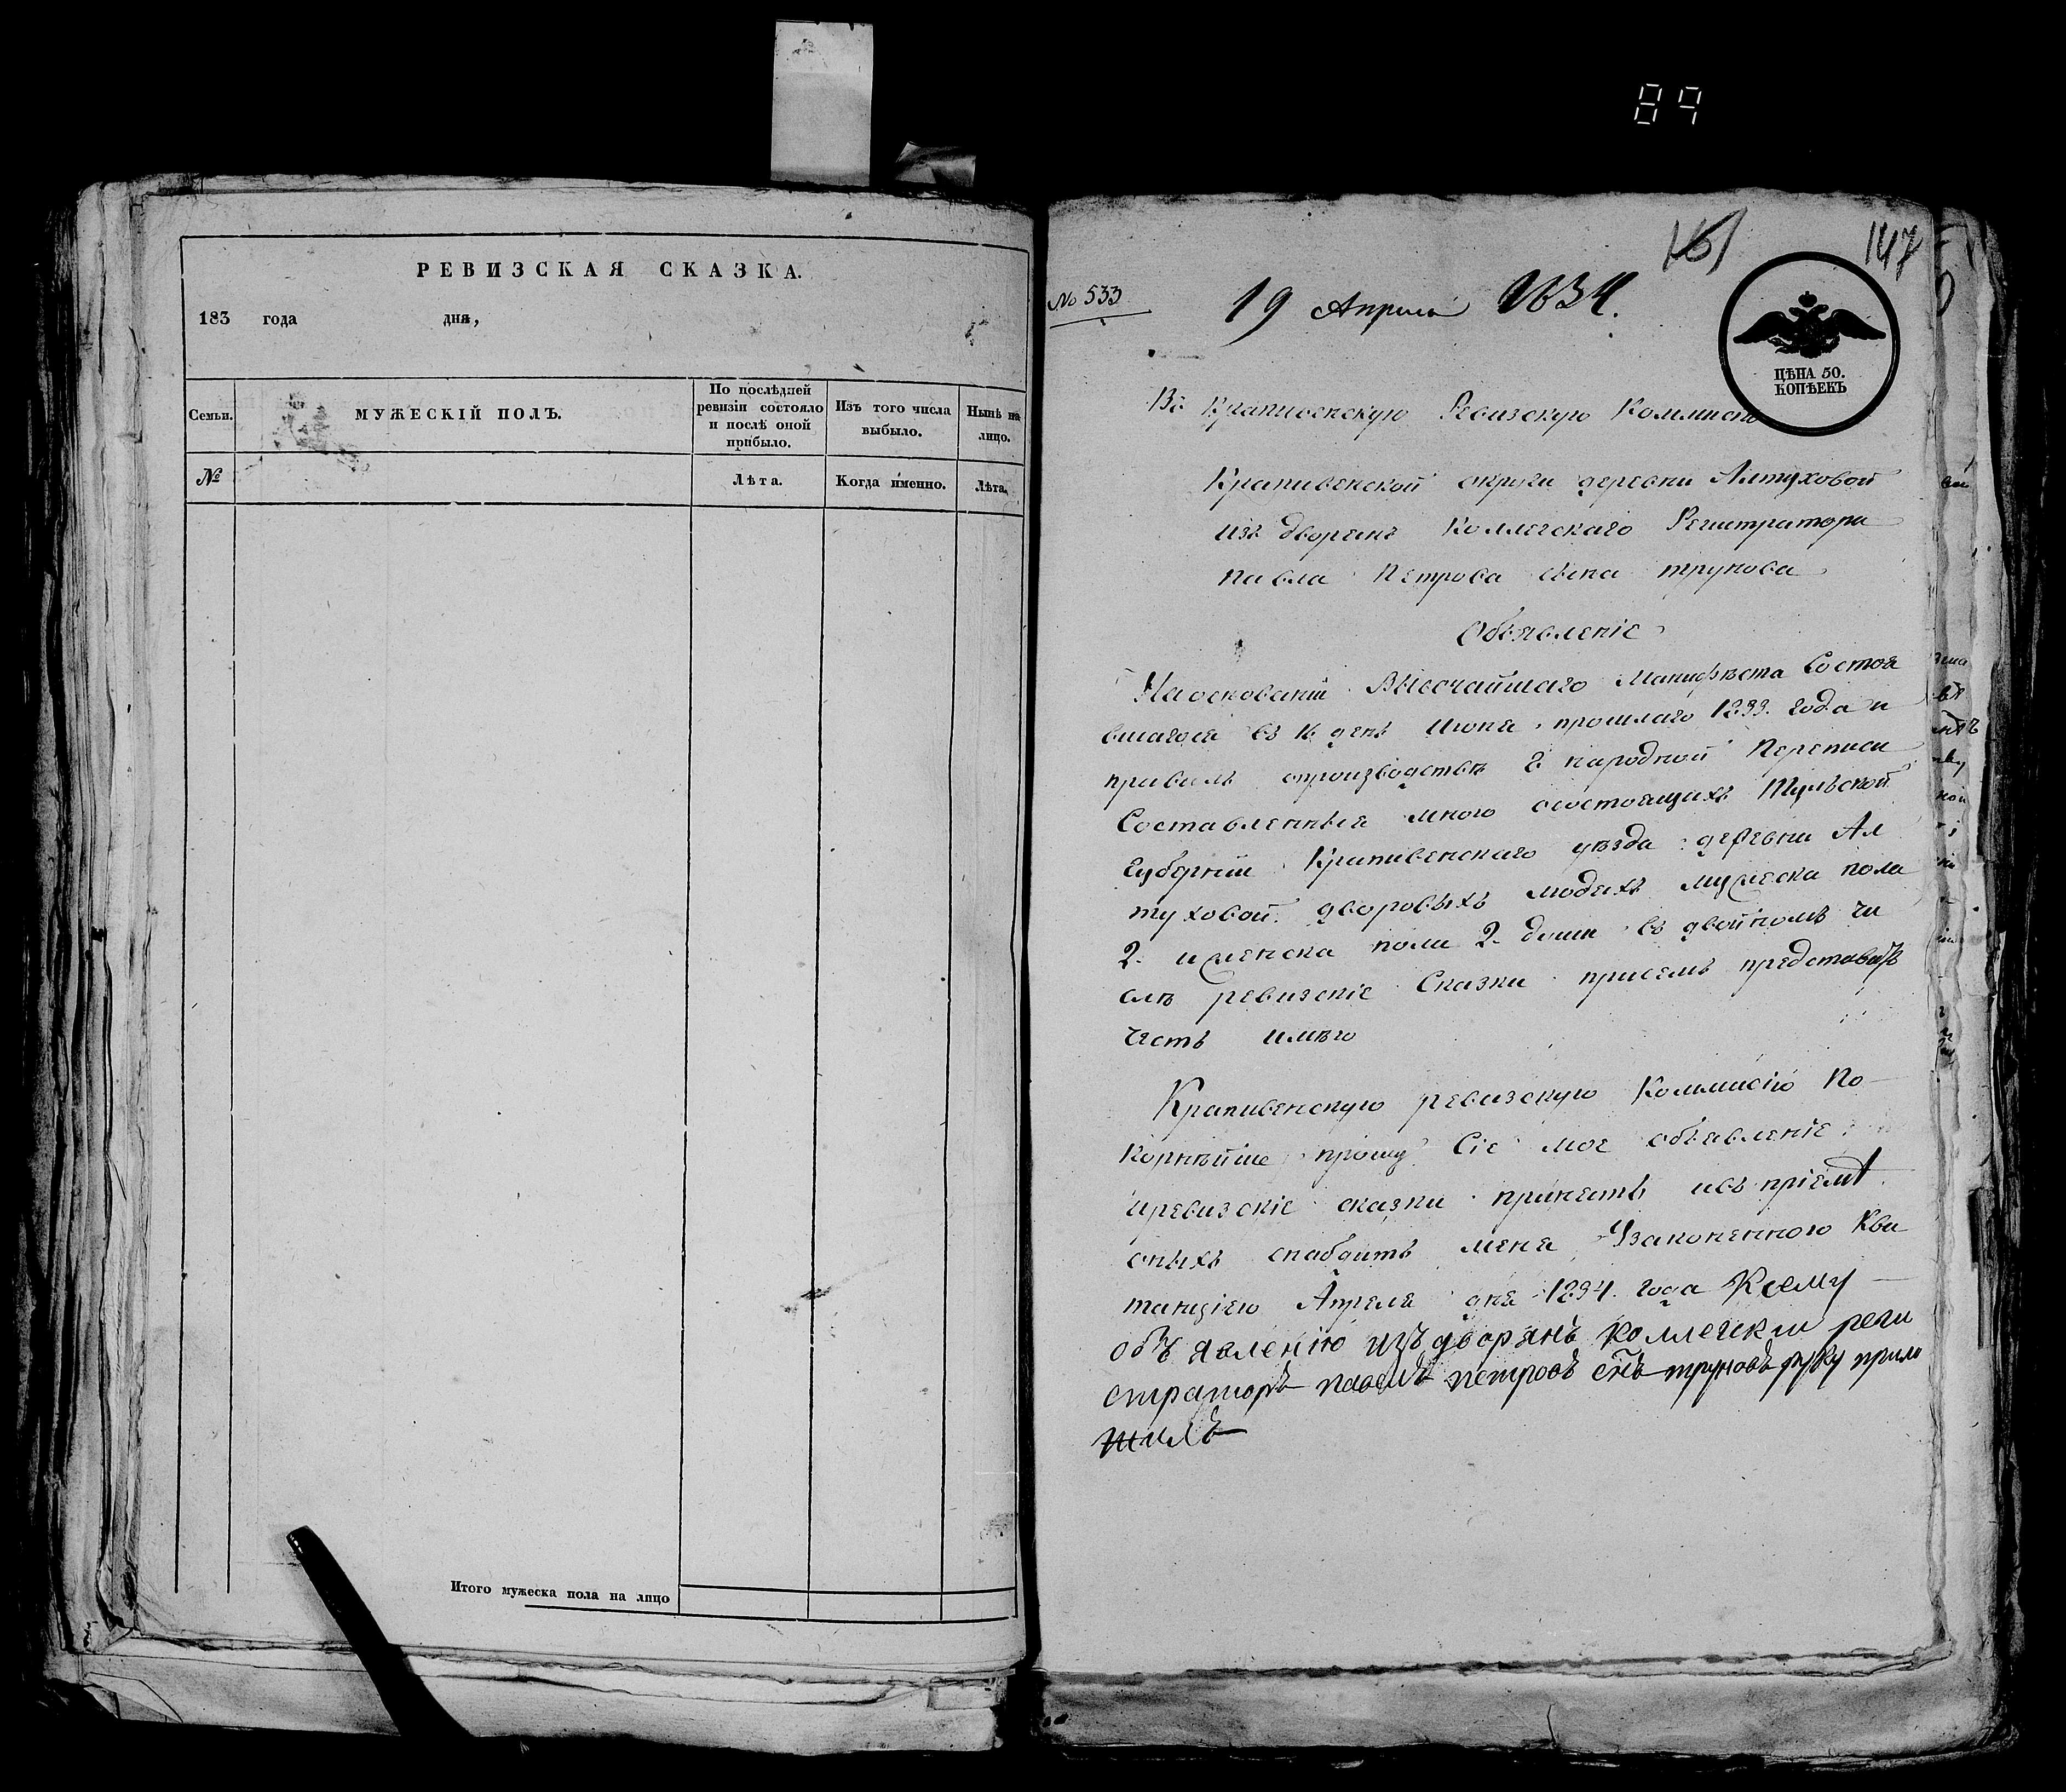 89
РЕВИЗСКАЯ СКАЗКА.
183 года дня,
Семьи.
МУЖЕСКІЙ ПОЛЪ.
По послѣдней
ревизіи состояло
и послѣ оной
прибыло.
Изъ того числа
выбыло.
Нынѣ на
лицо.
№
Лѣта.
Когда именно.
Лѣта.
Итого мужеска пола на лицо
161
147
№ 533
19 Апреля 1834.
ЦѢНА 50.
КОПѢЕКЪ
Въ Крапивенскую Ревизскую Коммисію
Крапивенской округи деревни Алтуховой
изъ дворянъ Коллегскаго Регистратора
павла Петрова сына трунова
Объявленіе
На основаніи Высочайшаго Манифѣста Состоя
вшагося въ 16 день Июня прошлаго 1833. года и
правилъ опроизводствѣ 8 народной Переписи
Составленныя мною состоящихъ Тульской
Губерніи Крапивенскаго уѣзда деревни Ал
туховой дворовыхъ людехъ мужеска пола
2. иженска пола 2. души въ двойномъ чи
слѣ ревизскіе Сказки присемъ представить
честь имѣю
Крапивенскую ревизскую Коммисію По-
корнѣйше прошу Сіе мое объявленіе
иревизскіе сказки принять ивъ пріемѣ
оныхъ снабдить меня Узаконенною Кви
танціею Апреля дня 1834. года Ксему
объявленію изъдворянъ коллегскии реги
страторъ павелъ петровъ снъ труновъ руку прило
жилъ